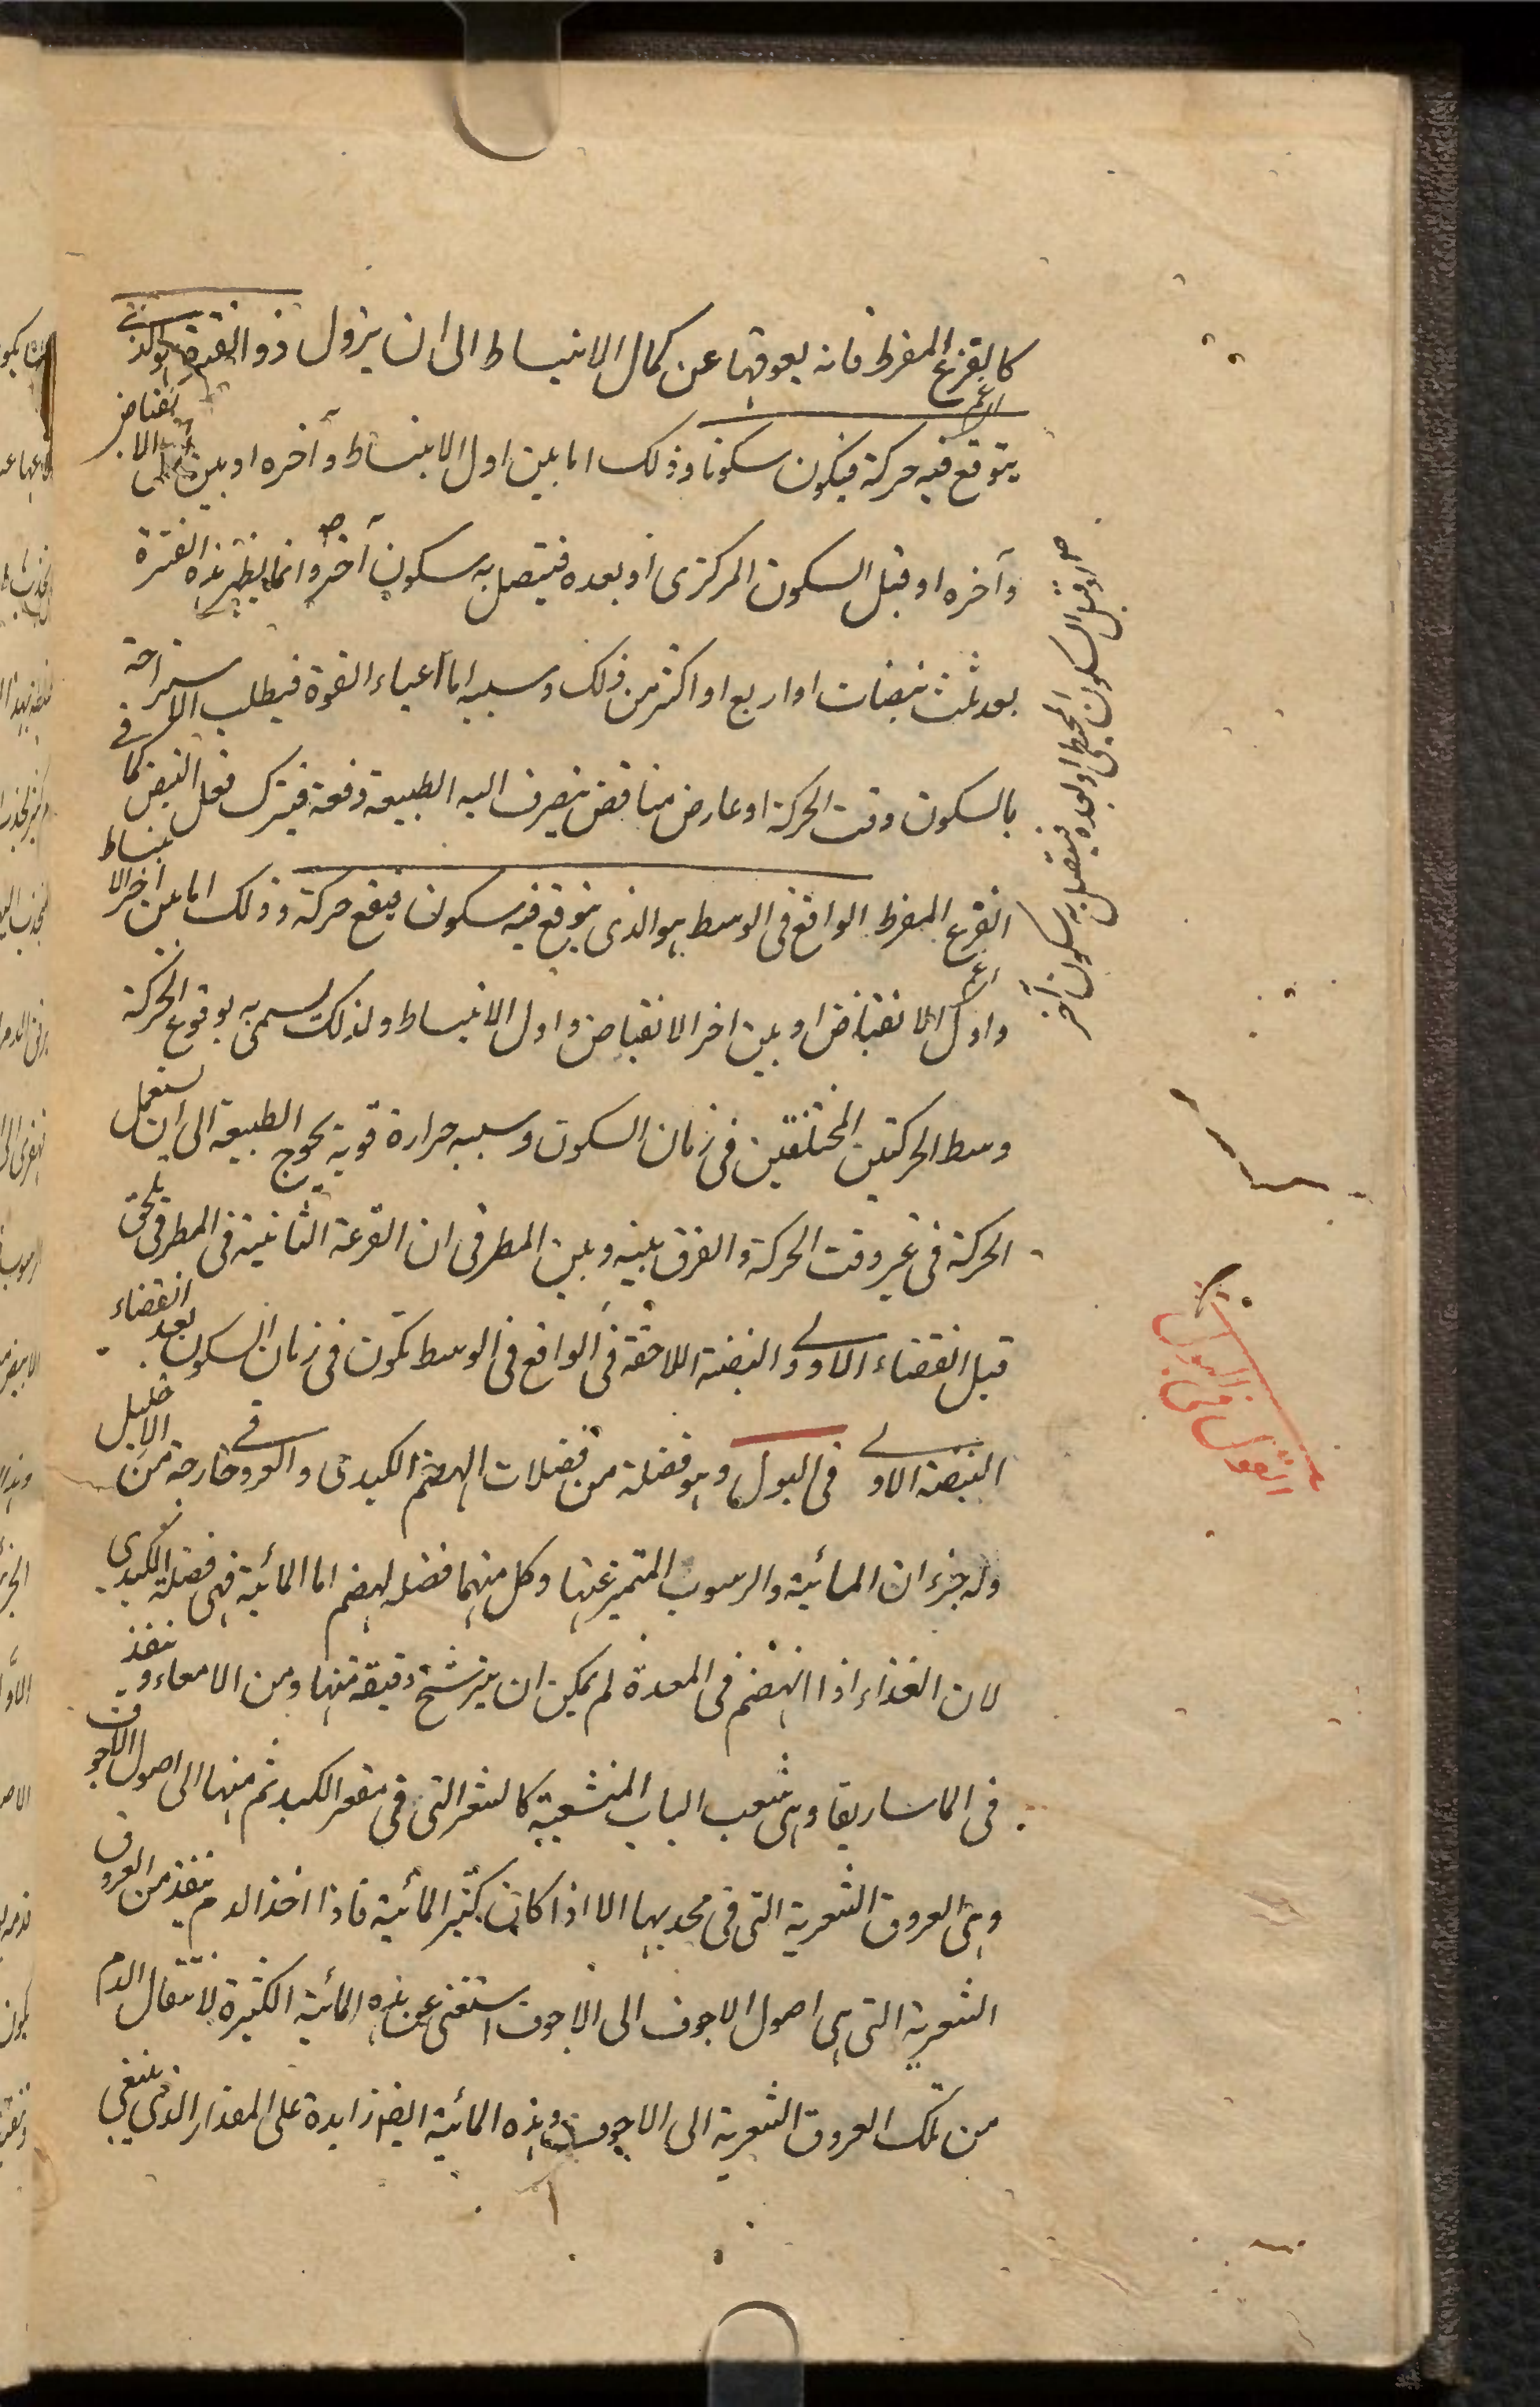 كالفزع المفرط فانه يعوقها عن كمال الانبساط الى ان يزول ذو الفترة هو الذى
يتوقع فيه حركة فيكون سكونا وذلك اما بين اول الانبساط وآخره او بين اول الانقباض
وآخره او قبل السكون المركزى او بعده فيتصل به سكون آخر وانما يظهر هذه الفترة
بعد ثلث نبضات او اربع او اكثر من ذلك وسببه اما اعياء القوة فيطلب الاستراحة
بالسكون وقت الحركة او عارض مناقض يتصرف اليه الطبيعة دفعة فيترك فعل النبض كما فى
الفزع المفرط الواقع فى الوسط هو الذى يتوقع فيه سكون فيقع حركة وذلك اما بين اخر الانبساط
واول الانقباض او بين اخر الانقباض واول الانبساط ولذلك يسمى به لوقوع الحركة
وسط الحركتين المختلفتين فى زمان السكون وسببه حرارة قوية يحوج الطبيعة الى ان يستعمل
الحركة فى غير وقت الحركة والفرق بينه وبين المطرقى ان القرعة الثانية فى المطرقى يلحق
قبل انقضاء الاولى والنبضة اللاحقة فى الواقع فى الوسط تكون فى زمان السكون بعد انقضاء
النبضة الاولى فى البول وهو فضلة من فضلات الهضم الكبدى والعروقى خارجة من الاحليل
وله جزءان المائية والرسوب المتميز عنها وكل منهما فضله لهضم اما المائية فهى فضلة الكبدى
لان الغذاء اذا انهضم فى المعدة لم يمكن ان يترشح دقيقه منها ومن الامعاء وينفذ
فى الماساريقا وهى شعب الباب المنشعبة كالشعر التى فى مقعر الكبد ثم منها الى اصول الاجوف
وهى العروق الشعرية التى فى محدبها الا اذا كان كثير المائية فاذا اخذ الدم ينفذ من العروق
الشعرية التى هى اصول الاجوف الى الاجوف استغنى عن هذه المائية الكثيرة لانتقال الدم
من تلك العروق الشعرية الى الاجوف وهذه المائية ايضا زايدة على المقدار الذى ينبغى
او قبل السكون المحيطى او بعده فيتصل به سكون آخر
القول فى البول